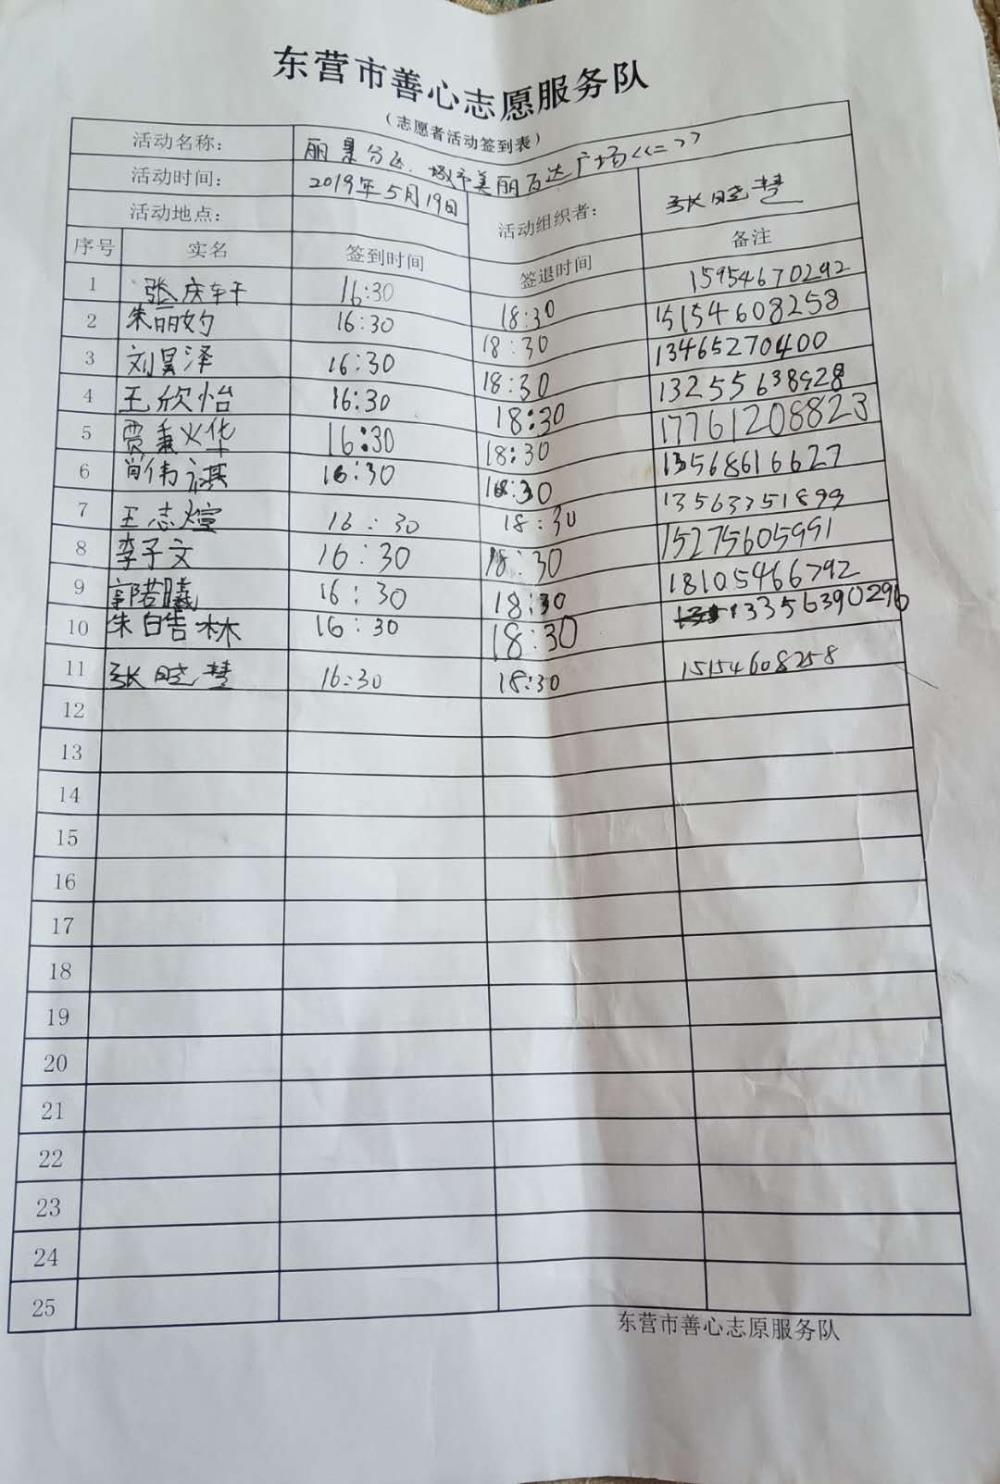 东营市善心志愿服务队
（志愿者活动签到表）
活动名称： 丽景分区.城市美丽万达广场<<二>>
活动时间： 2019年5月19日 活动组织者： 张晓慧
活动地点：
序号 实名 签到时间 签退时间 备注
1 张庆轩 16:30 18:30 15954670292
2 朱丽灼 16:30 18:30 15154608258
3 刘昊泽 16:30 18:30 13465270400
4 王欣怡 16:30 18:30 13255638928
5 贾秉华 16:30 18:30 17761208823
6 尚伟祺 16:30 18:30 13568616627
7 王志煊 16:30 18:30 13563351899
8 李子文 16:30 18:30 15275605991
9 郭若曦 16:30 18:30 18105466792
10 朱皓林 16:30 18:30 13356390296
11 张晓慧 16:30 18:30 15154608258
12
13
14
15
16
17
18
19
20
21
22
23
24
25
东营市善心志原服务队